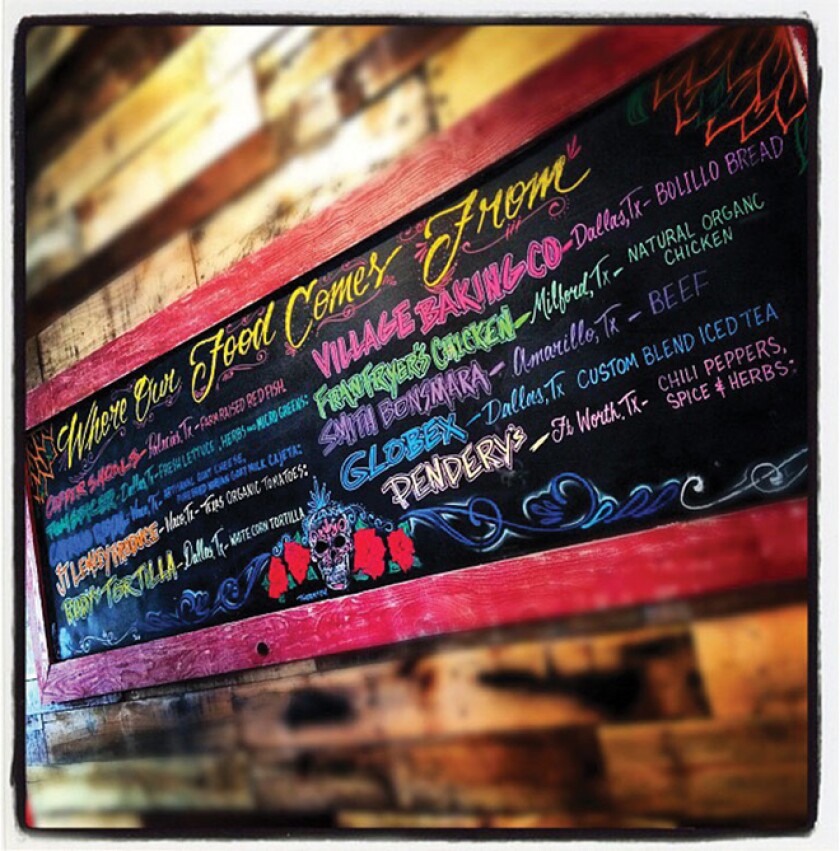 Where Our Food Comes From
COPPER SHOALS - Palacios, Tx - FARM RAISED RED FISH
TOM SPICER - Dallas, Tx - FRESH LETTUCE, HERBS and MICRO GREENS:
Waco, Tx - ARTISANAL GOAT CHEESE,
GOAT MILK CAJETA:
JT LEMLEY PRODUCE - Waco, Tx - TEXAS ORGANIC TOMATOES:
TORTILLA - Dallas, Tx - WHITE CORN TORTILLA
VILLAGE BAKING CO - Dallas, Tx - BOLILLO BREAD
FRAN FRYER'S CHICKEN - Milford, Tx - NATURAL ORGANC
CHICKEN
SMITH BONSMARA - Amarillo, Tx - BEEF
GLOBEX - Dallas, Tx CUSTOM BLEND ICED TEA
PENDERY'S - Ft Worth, Tx - CHILI PEPPERS,
SPICE & HERBS: